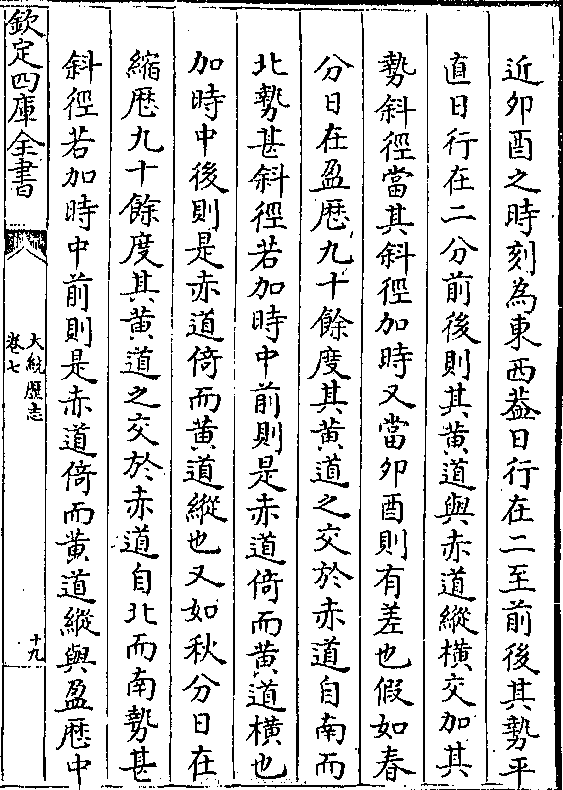 近卯酉之時刻為東西葢日行在二至前後其勢平
直日行在二分前後則其黄道與赤道縱横交加其
勢斜徑當其斜徑加時又當卯酉則有差也假如春
分日在盈厯九十餘度其黄道之交於赤道自南而
北勢甚斜徑若加時中前則是赤道倚而黄道横也
加時中後則是赤道倚而黄道縱也又如秋分日在
縮厯九十餘度其黄道之交於赤道自北而南勢甚
斜徑若加時中前則是赤道倚而黄道縱與盈厯中
欽定四庫全書
大統厯志
卷七
十九